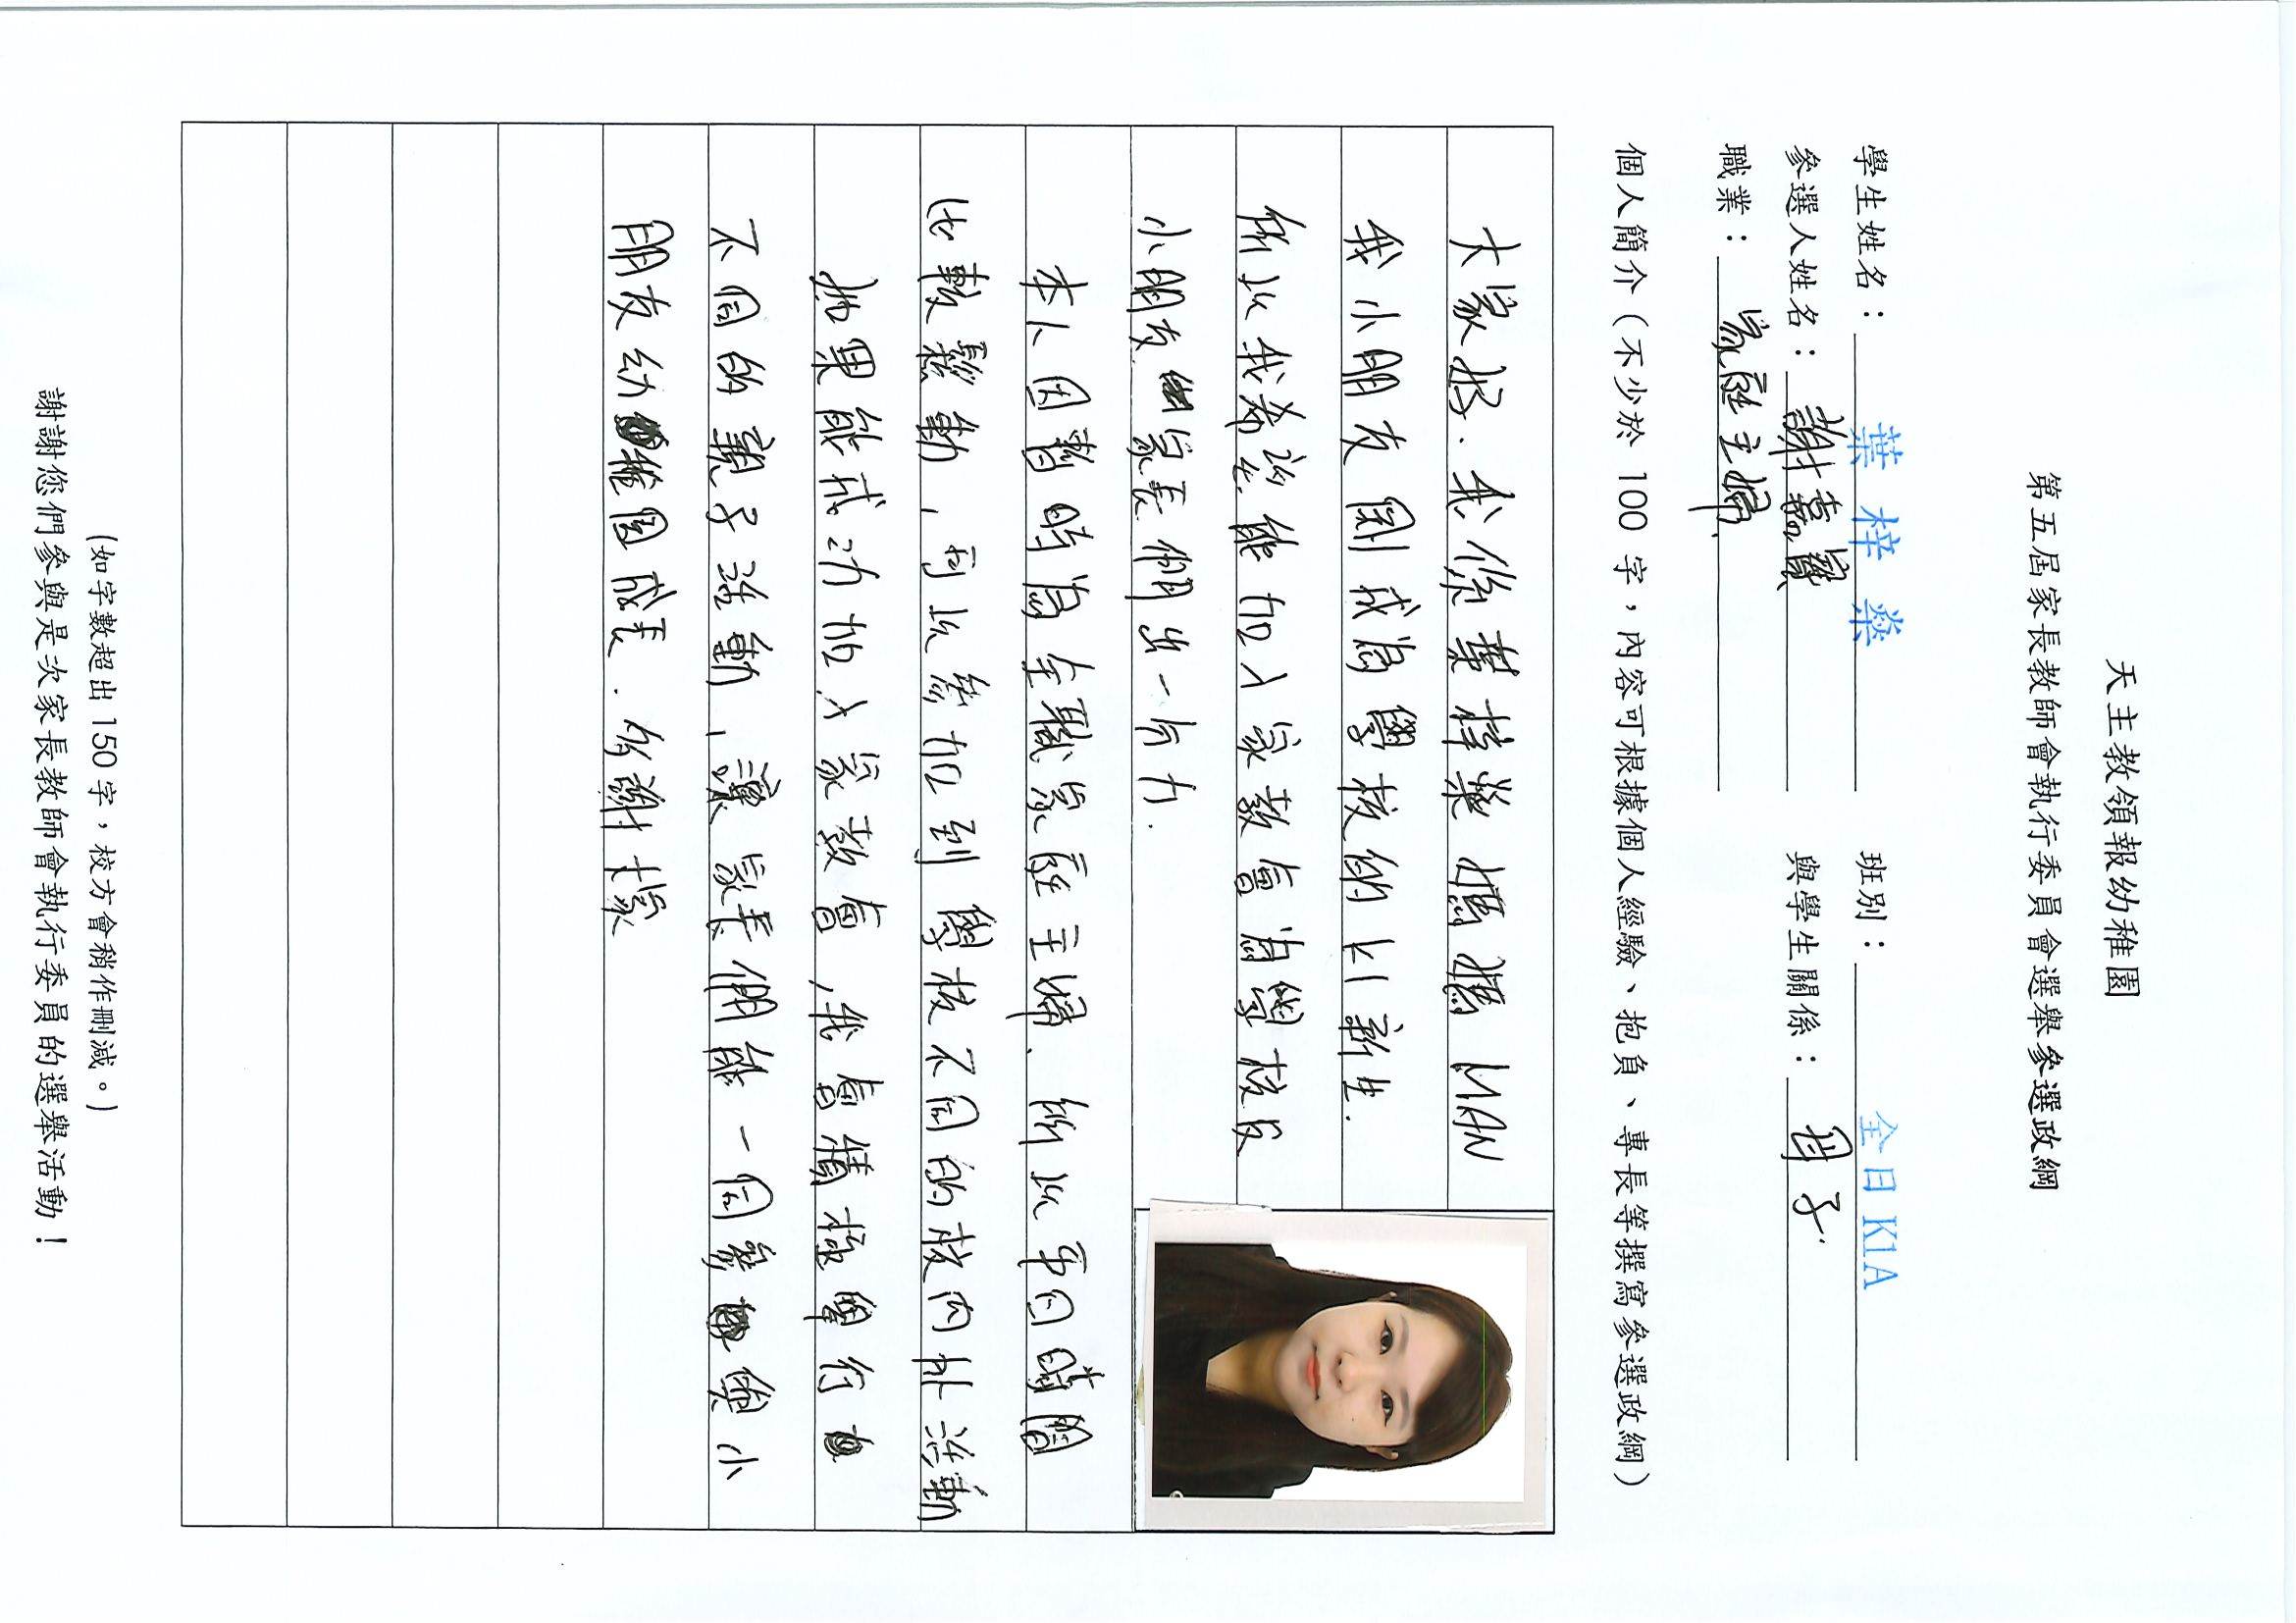 天主教領報幼稚園
第五屆家長教師會執行委員會選舉參選政綱
學生姓名： 葉梓燊 班別： 全日K1A
參選人姓名： 謝嘉寶 與學生關係： 母子
職業： 家庭主婦
個人簡介（不少於 100 字，內容可根據個人經驗、抱負、專長等撰寫參選政綱）
大家好．我係葉梓燊媽媽 MAN
我小朋友剛成為學校的 K1 新生．
所以我希望能加入家教會為學校及
小朋友家長們出一分力．
本人因暫時為全職家庭主婦．所以平日時間
比較鬆動，可以參加到學校不同的校內外活動
如果能成功加入家教會，我會積極舉行
不同的親子活動，讓家長們能一同參與小
朋友幼稚園成長．多謝大家
(如字數超出 150 字，校方會稍作刪減。)
謝謝您們參與是次家長教師會執行委員的選舉活動！